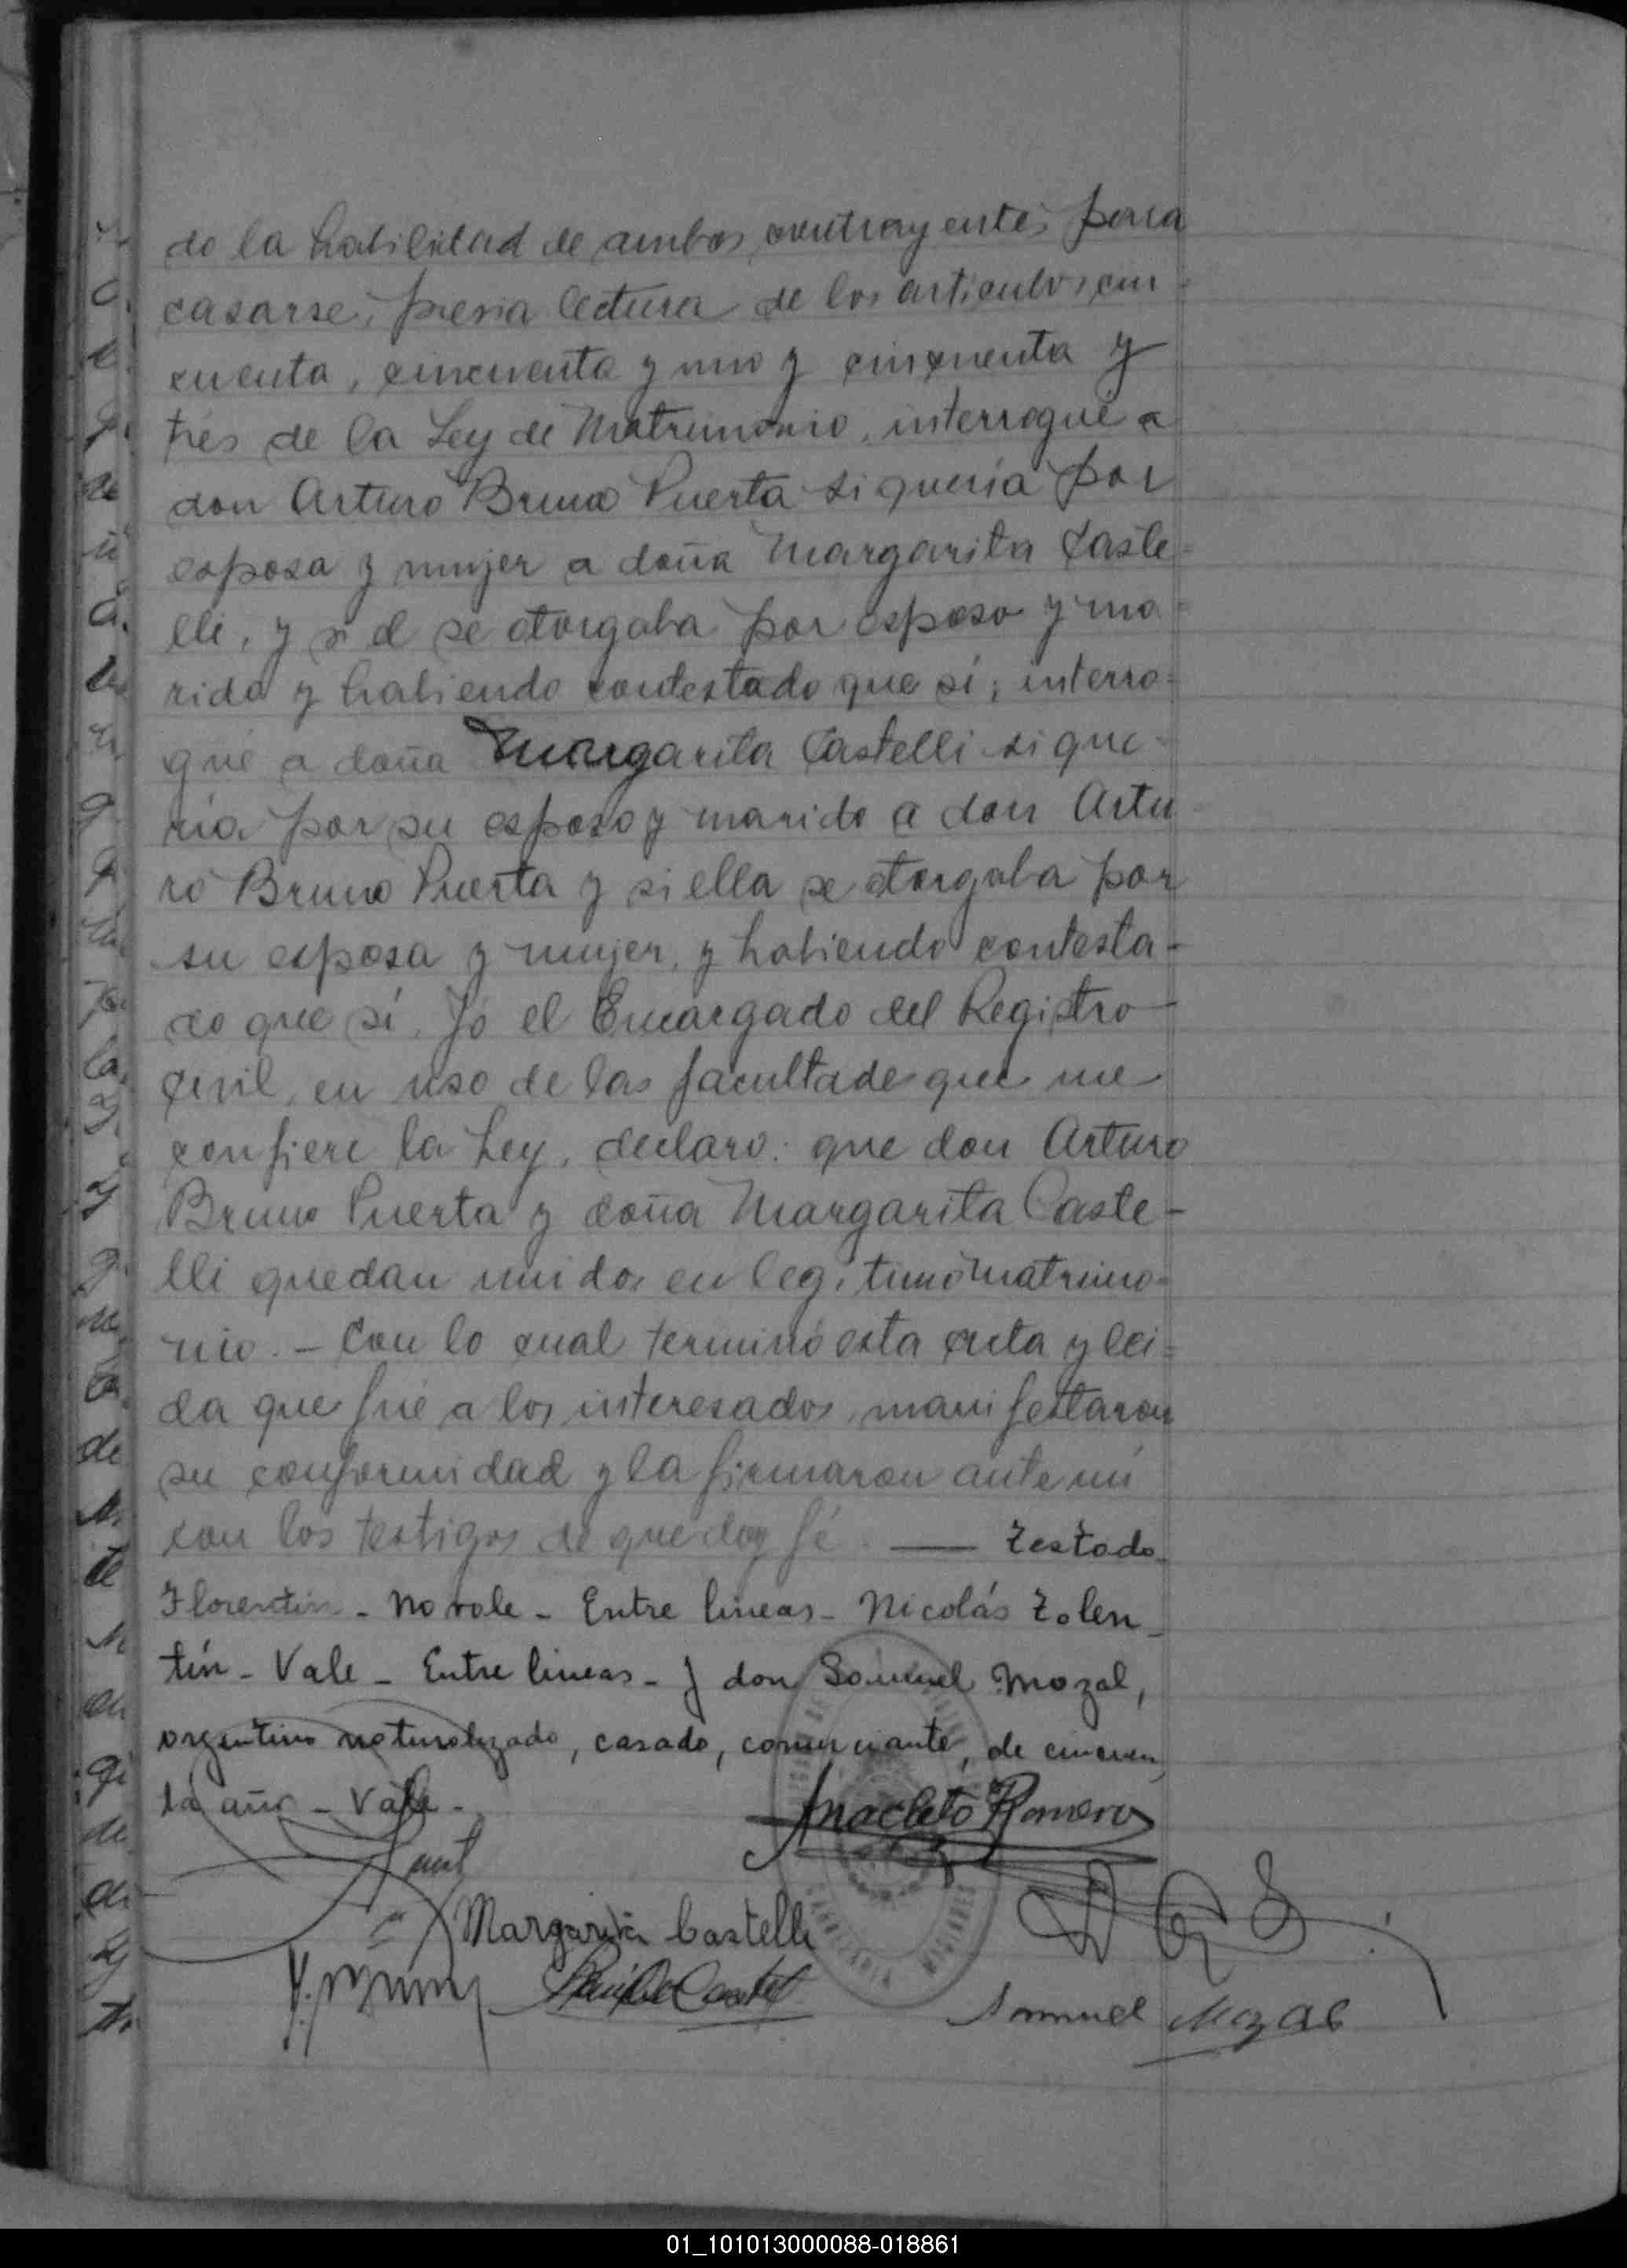 do la habilidad de ambos contrayentes para
casarse, previa lectura de los articulos cin-
cuenta, cincuenta y uno y cincuenta y
tres de la Ley de Matrimonio, interrogué a
don Arturo Bruno Puerta si quería por
esposa y mujer a doña Margarita Caste=
lli, y si el se otorgaba por esposo y ma=
rido y habiendo contestado que sí; interro=
gué a doña Margarita Castelli si que-
ria por su esposo y marido a don Artu-
ro Bruno Puerta y si ella se otorgaba por
su esposa y mujer, y habiendo contesta-
do que sí. Yo el Encargado del Registro
Civil, en uso de las facultade que me
confiere la Ley, declaro: que don Arturo
Bruno Puerta y doña Margarita Caste-
lli quedan unidos en legitimo matrimo-
nio. - Con lo cual terminó esta acta y lei=
da que fué a los interesados, manifestaron
su conformidad y la firmaron ante mi
con los testigos de que doy fé. — Testado
Florentin - No vale - Entre lineas - Nicolás Tolen-
tín - Vale - Entre lineas - y don Samuel Mozal,
argentino naturalizado, casado, comerciante, de cincuen
ta año - Vale -
Anacleto Romero
Margarita Castelli
Samuel Mozal
CANDELARIA MISIONES
01_101013000088-018861